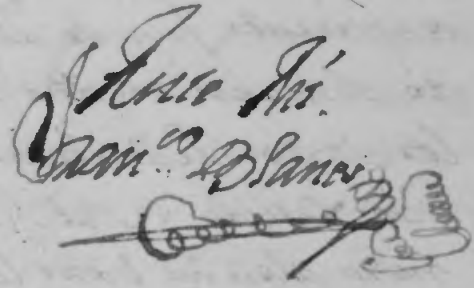 Ante Mí.
Juan.co Blanco